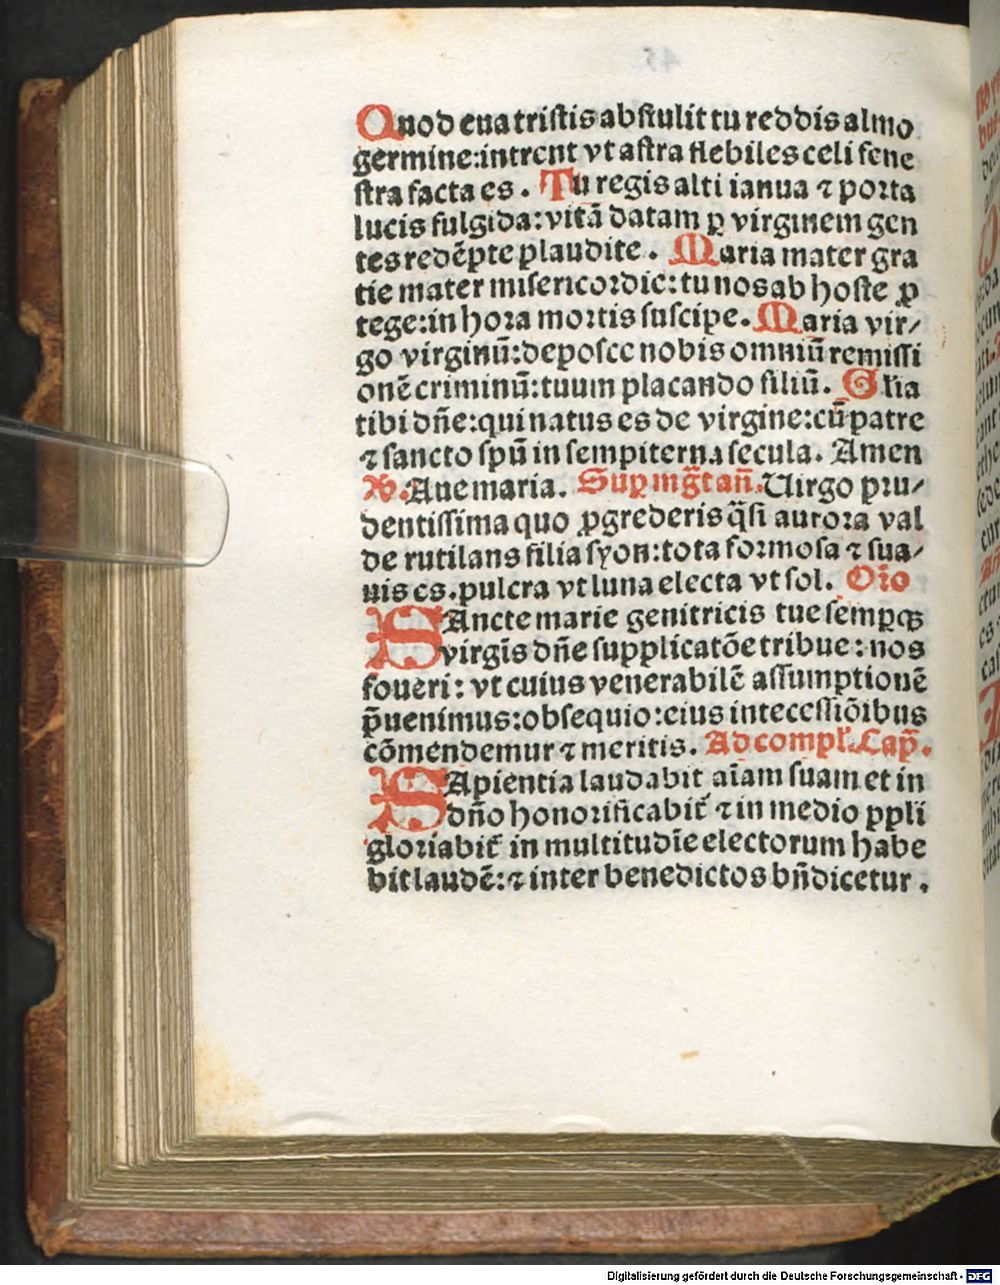 Quod eua tristis abstulit tu reddis almo
germine:intrent vt astra flebiles celi fene
stra facta es. Tu regis alti ianua ⁊ porta
lucis fulgida:vitā datam ꝑ virginem gen
tes redēpte plaudite. Maria mater gra
tie mater misericordie:tu nos ab hoste ꝓ
tege:in hora mortis suscipe. Maria vir/
go virginū:deposce nobis omniū remissi
onē criminū:tuum placando filiū. Glia
tibi dñe:qui natus es de virgine:cū patre
⁊ sancto spū in sempiterna secula. Amen
℣. Aue maria. Sup mḡt añ. Uirgo pru/
dentissima quo ꝓgrederis q̄si aurora val
de rutilans filia syon:tota formosa ⁊ sua/
uis es.pulcra vt luna electa vt sol. Orō
SAncte marie genitricis tue sempqꝫ
virgīs dñe supplicatōe tribue: nos
foueri: vt cuius venerabilē assumptionē
p̄uenimus:obsequio:eius intecessiōibus
cōmendemur ⁊ meritis. Ad compl. Cap̄.
SApientia laudabit aīam suam et in
dño honorificabit᷑ ⁊ in medio ppli
gloriabit᷑ in multitudīe electorum habe
bit laudē:⁊ inter benedictos bñdicetur.
Digitalisierung gefördert durch die Deutsche Forschungsgemeinschaft - DFG